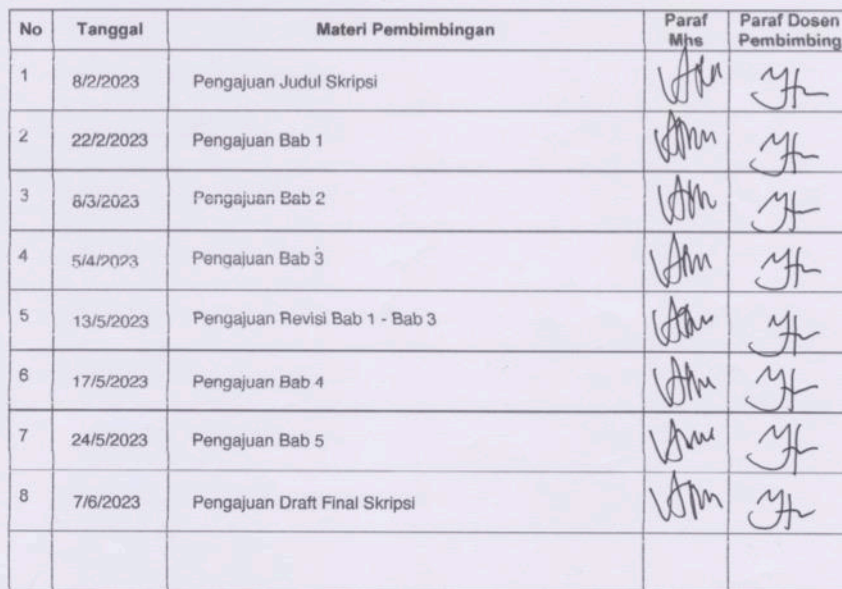 No Tanggal Materi Pembimbingan Paraf Mhs Paraf Dosen Pembimbing
1 8/2/2023 Pengajuan Judul Skripsi
2 22/2/2023 Pengajuan Bab 1
3 8/3/2023 Pengajuan Bab 2
4 5/4/2023 Pengajuan Bab 3
5 13/5/2023 Pengajuan Revisi Bab 1 - Bab 3
6 17/5/2023 Pengajuan Bab 4
7 24/5/2023 Pengajuan Bab 5
8 7/6/2023 Pengajuan Draft Final Skripsi